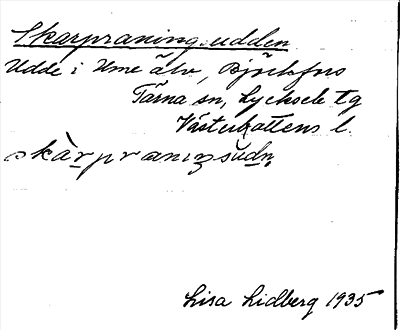 Skarpraningsudden
Udde i Ume älv, Björkfors
Tärna sn, Lycksele tg
Västerbottens l.
skàrpranıŋsudn̥
Lisa Lidberg 1935